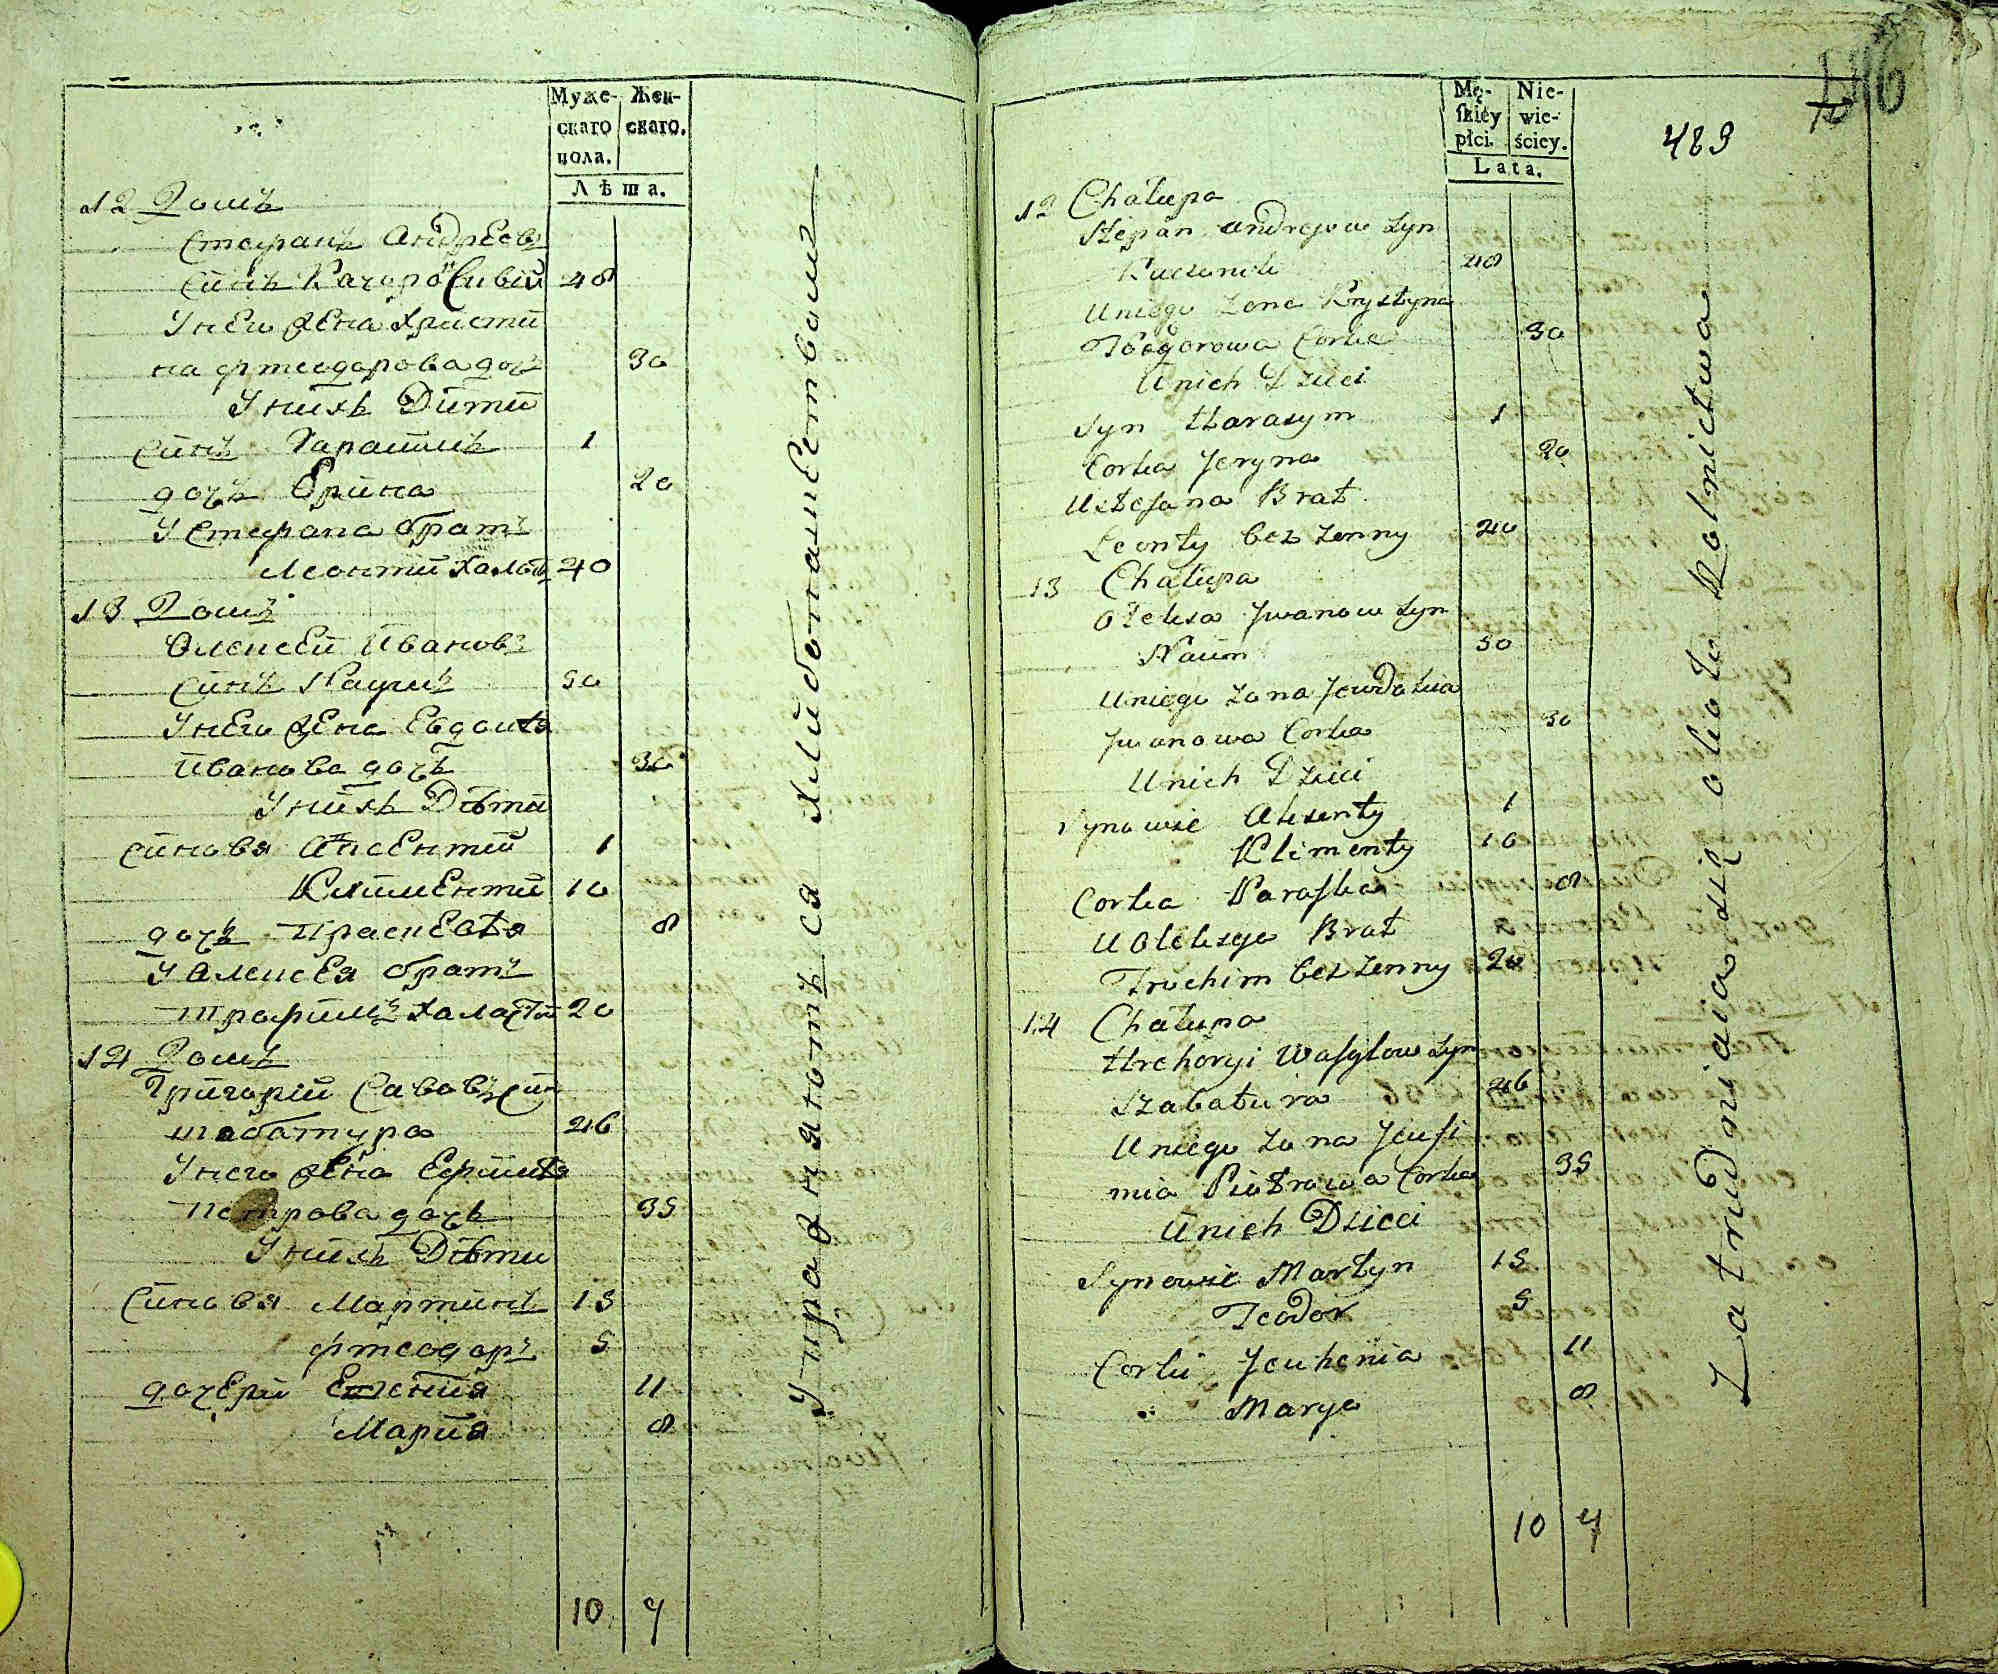 Муже-
скаго
пола.
Жен-
скаго.
Лѣта.
12 Домъ
Стефанъ Андреевъ
Синъ 48
У него жена Христи
на Фтеодорова дочъ 30
У нихъ Дити
Синъ Гарасимъ 1
дочъ Ерина 20
У Стефана братъ
Леонтий Халостъ 40
13 Домъ
Олексей Ивановъ
Синъ Наумъ 50
У него жена Евдокія
Иванова дочъ 30
У нихъ Дѣти
Синовя Авксентий 1
Климентий 10
дочъ Праскевія 8
У Алексея братъ
Трафимъ Халастий 20
14 Домъ
Григорий Савовъ Син
шабатура 46
У него жена Ефимія
Петрова дочъ 35
У нихъ Дѣти
Синовя Мартинъ 15
Фтеодоръ 5
дочери Евгения 11
Мария 8
10 7
Упражняютъся Хлиборашеством
Mę-
skiey
płci.
Nie-
wie-
ściey.
Lata.
483
12 Chałupa
Stepan Andrejow Syn
48
U niego Zona Krystyna
Teodorowa Corka 30
U nich Dzieci
Syn Harasym 1
Corka Jeryna 20
U Stefana Brat
Leonty bez Zenny 40
13 Chałupa
Oleksa Jwanow Syn
Naum 50
U niego Zona Jewdokia
Jwanowa Corka 30
U nich Dzieci
Synowie Aksenty 1
Klimenty 10
Corka Paraska 8
U Oleksego Brat
Trochim bez Zenny 20
14 Chałupa
Hrehoryi Wasylow Syn
Szabatura 46
U niego Zona Jeufi
mia Piotrowa Corka 35
U nich Dzieci
Synowie Martyn 15
Teodor 5
Corki Jeuhenia 11
Marya 8
10 7
Zatrudniaią się około Rolnictwa